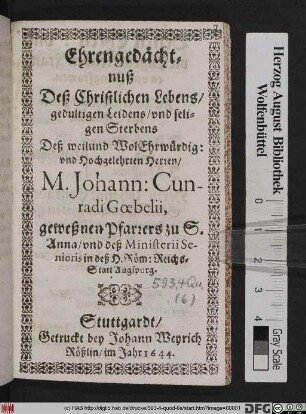 Ehrengedächt-
nuß
Deß Christlichen Lebens/
gedultigen Leidens/ vnd seli-
gen Sterbens
Deß weilund WolEhrwürdig:
vnd Hochgelehrten Herren/
M. Johann: Cun-
radi Gœbelii,
geweßnen Pfarrers zu S.
Anna/ vnd deß Ministerii Se-
nioris in deß H. Röm: Reichs-
Statt Augspurg.
593,4 Qu.
(6)
Stuttgardt/
Getruckt bey Johann Weyrich
Rößlin/ im Jahr 1644.
Herzog August Bibliothek
Wolfenbüttel
0 1 2 3 4 5 6 7 8
Gray Scale
(c) HAB http://diglib.hab.de/drucke/593-4-quod-6s/start.htm?image=00001
DFG